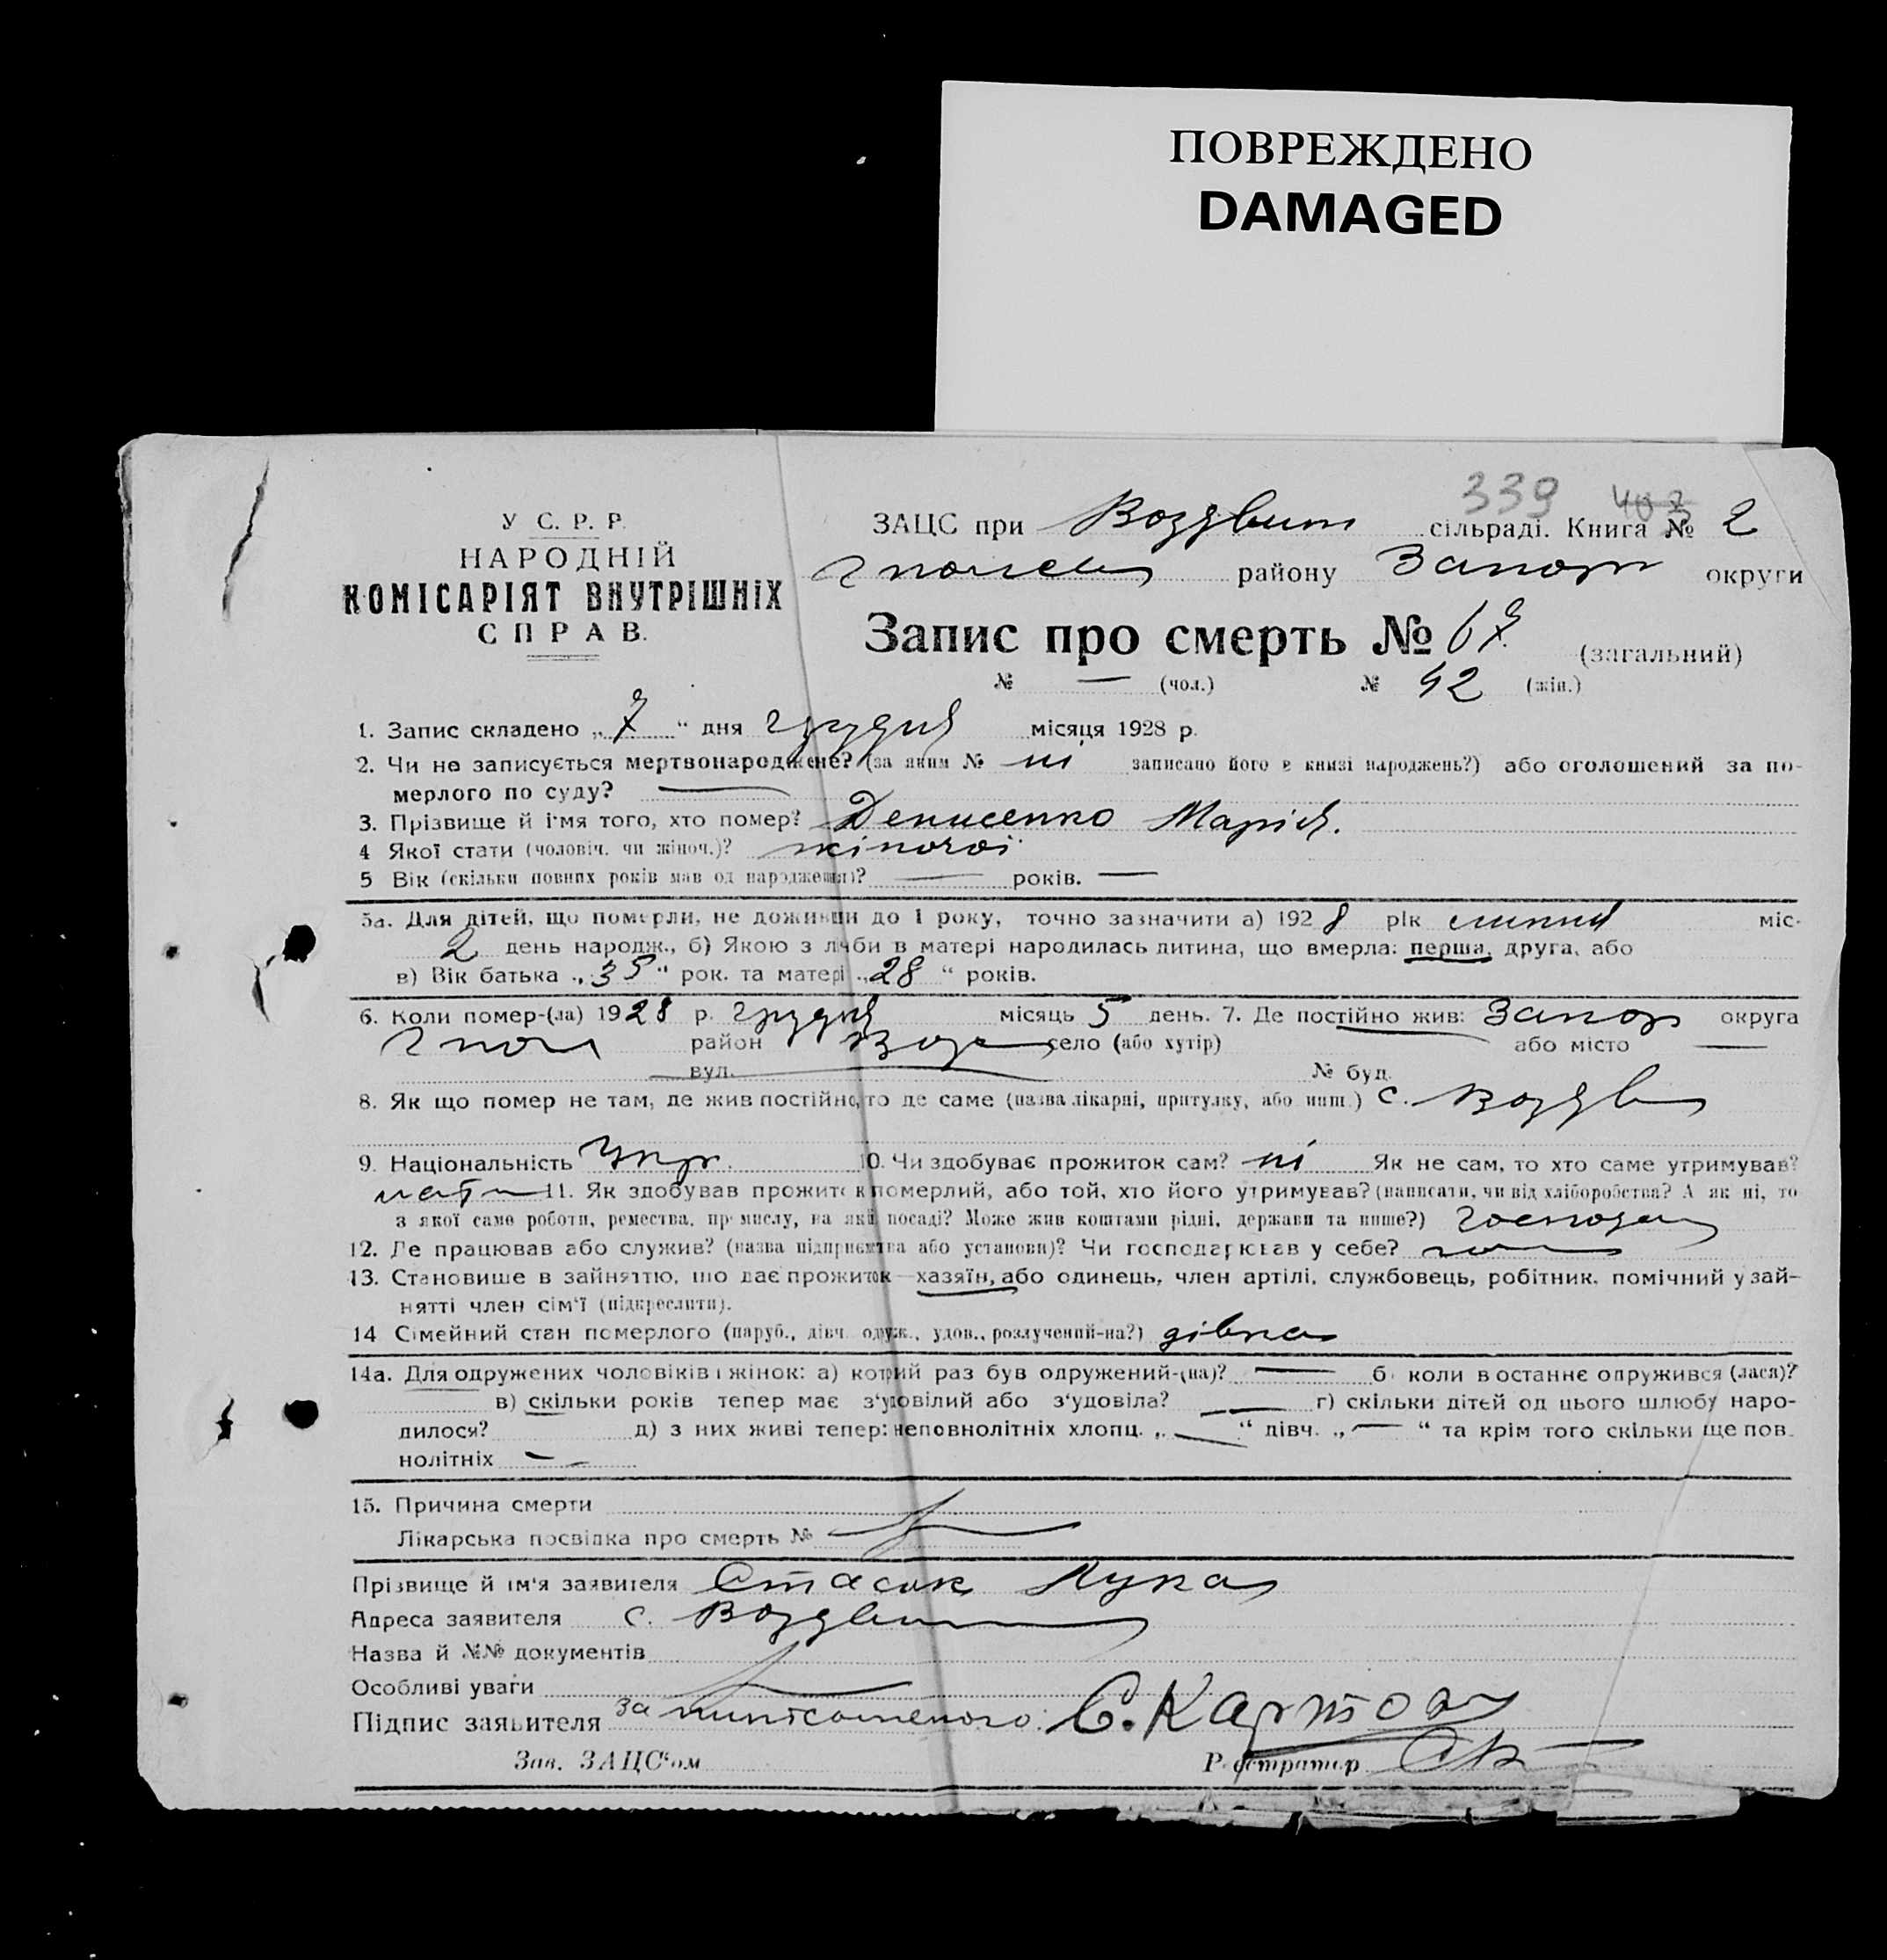 ПОВРЕЖДЕНО
DAMAGED
339 403
У С. Р. Р.
НАРОДНІЙ
КОМІСАРІЯТ ВНУТРІШНІХ
СПРАВ.
ЗАЦС при Воздвиж сільраді. Книга № 2
Гполе району Запор округи
Запис про смерть № 67 (загальний)
№ — (чол.) № 42 (жін.)
1. Запис складено „7“ дня грудня місяця 1928 р.
2. Чи не записується мертвонароджене? (за яким № ні записано його в книзі народжень?) або оголошений за по-
мерлого по суду? —
3. Прізвище й імя того, хто помер? Денисенко Марія.
4 Якої стати (чоловіч. чи жіноч.)? жіночої
5 Вік (скільки повних років мав од народження)? — років. —
5а. Для дітей, що померли, не доживши до 1 року, точно зазначити а) 1928 рік липня міс.
2 день народж., б) Якою з лічби в матері народилась дитина, що вмерла: перша, друга, або
в) Вік батька „35“ рок. та матері „28“ років.
6. Коли помер-(ла) 1928 р. грудня місяць 5 день. 7. Де постійно жив: Запор округа
Гпол район Воз село (або хутір) або місто —
вул. № буд.
8. Як що помер не там, де жив постійно, то де саме (назва лікарні, притулку, або инш.) с. Воздв
9. Національність Укр. 10. Чи здобуває прожиток сам? ні Як не сам, то хто саме утримував?
11. Як здобував прожиток померлий, або той, хто його утримував? (написати, чи від хліборобства? А як ні, то
з якої саме роботи, ремества, промислу, на якій посаді? Може жив коштами рідні, держави та инше?) господар
12. Де працював або служив? (назва підприємства або установи)? Чи господарював у себе?
13. Становище в зайняттю, що дає прожиток—хазяїн, або одинець, член артілі, службовець, робітник, помічний у зай-
нятті член сім'ї (підкреслити).
14 Сімейний стан померлого (паруб., дівч. одруж., удов., розлучений-на?) дівка
14а. Для одружених чоловіків і жінок: а) котрий раз був одружений-(на)? — б) коли востаннє одружився (лася)?
в) скільки років тепер має з'удовілий або з'удовіла? — г) скільки дітей од цього шлюбу наро-
дилося? д) з них живі тепер: неповнолітніх хлопц. „—“ дівч. „—“ та крім того скільки ще пов-
нолітніх —
15. Причина смерти
Лікарська посвідка про смерть №
Прізвище й ім'я заявителя Стасюк Лука
Адреса заявителя с. Воздвиж
Назва й №№ документів
Особливі уваги
Підпис заявителя за С. Картов
Зав. ЗАЦС'ом Реєстратор